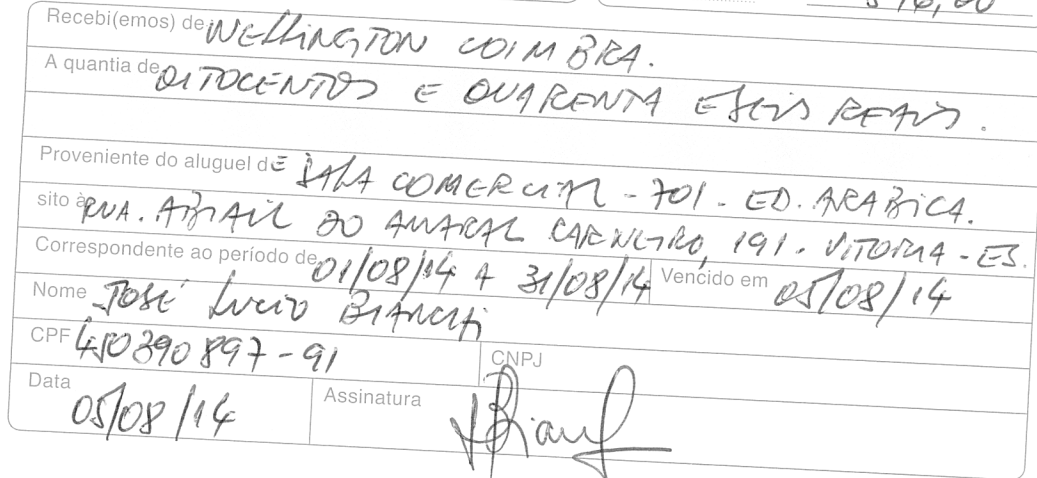 Recebi(emos) de WELLINGTON COIMBRA.
A quantia de OITOCENTOS E QUARENTA E SEIS REAIS.
Proveniente do aluguel dE SALA COMERCIAL - 701 - ED. ARABICA.
sito à RUA. ABIAIL DO AMARAL CARNEIRO, 191 - VITORIA - ES.
Correspondente ao período de 01/08/14 A 31/08/14 Vencido em 05/08/14
Nome JOSÉ LUCIO BIANCHI
CPF 450390897-91 CNPJ
Data 05/08/14 Assinatura